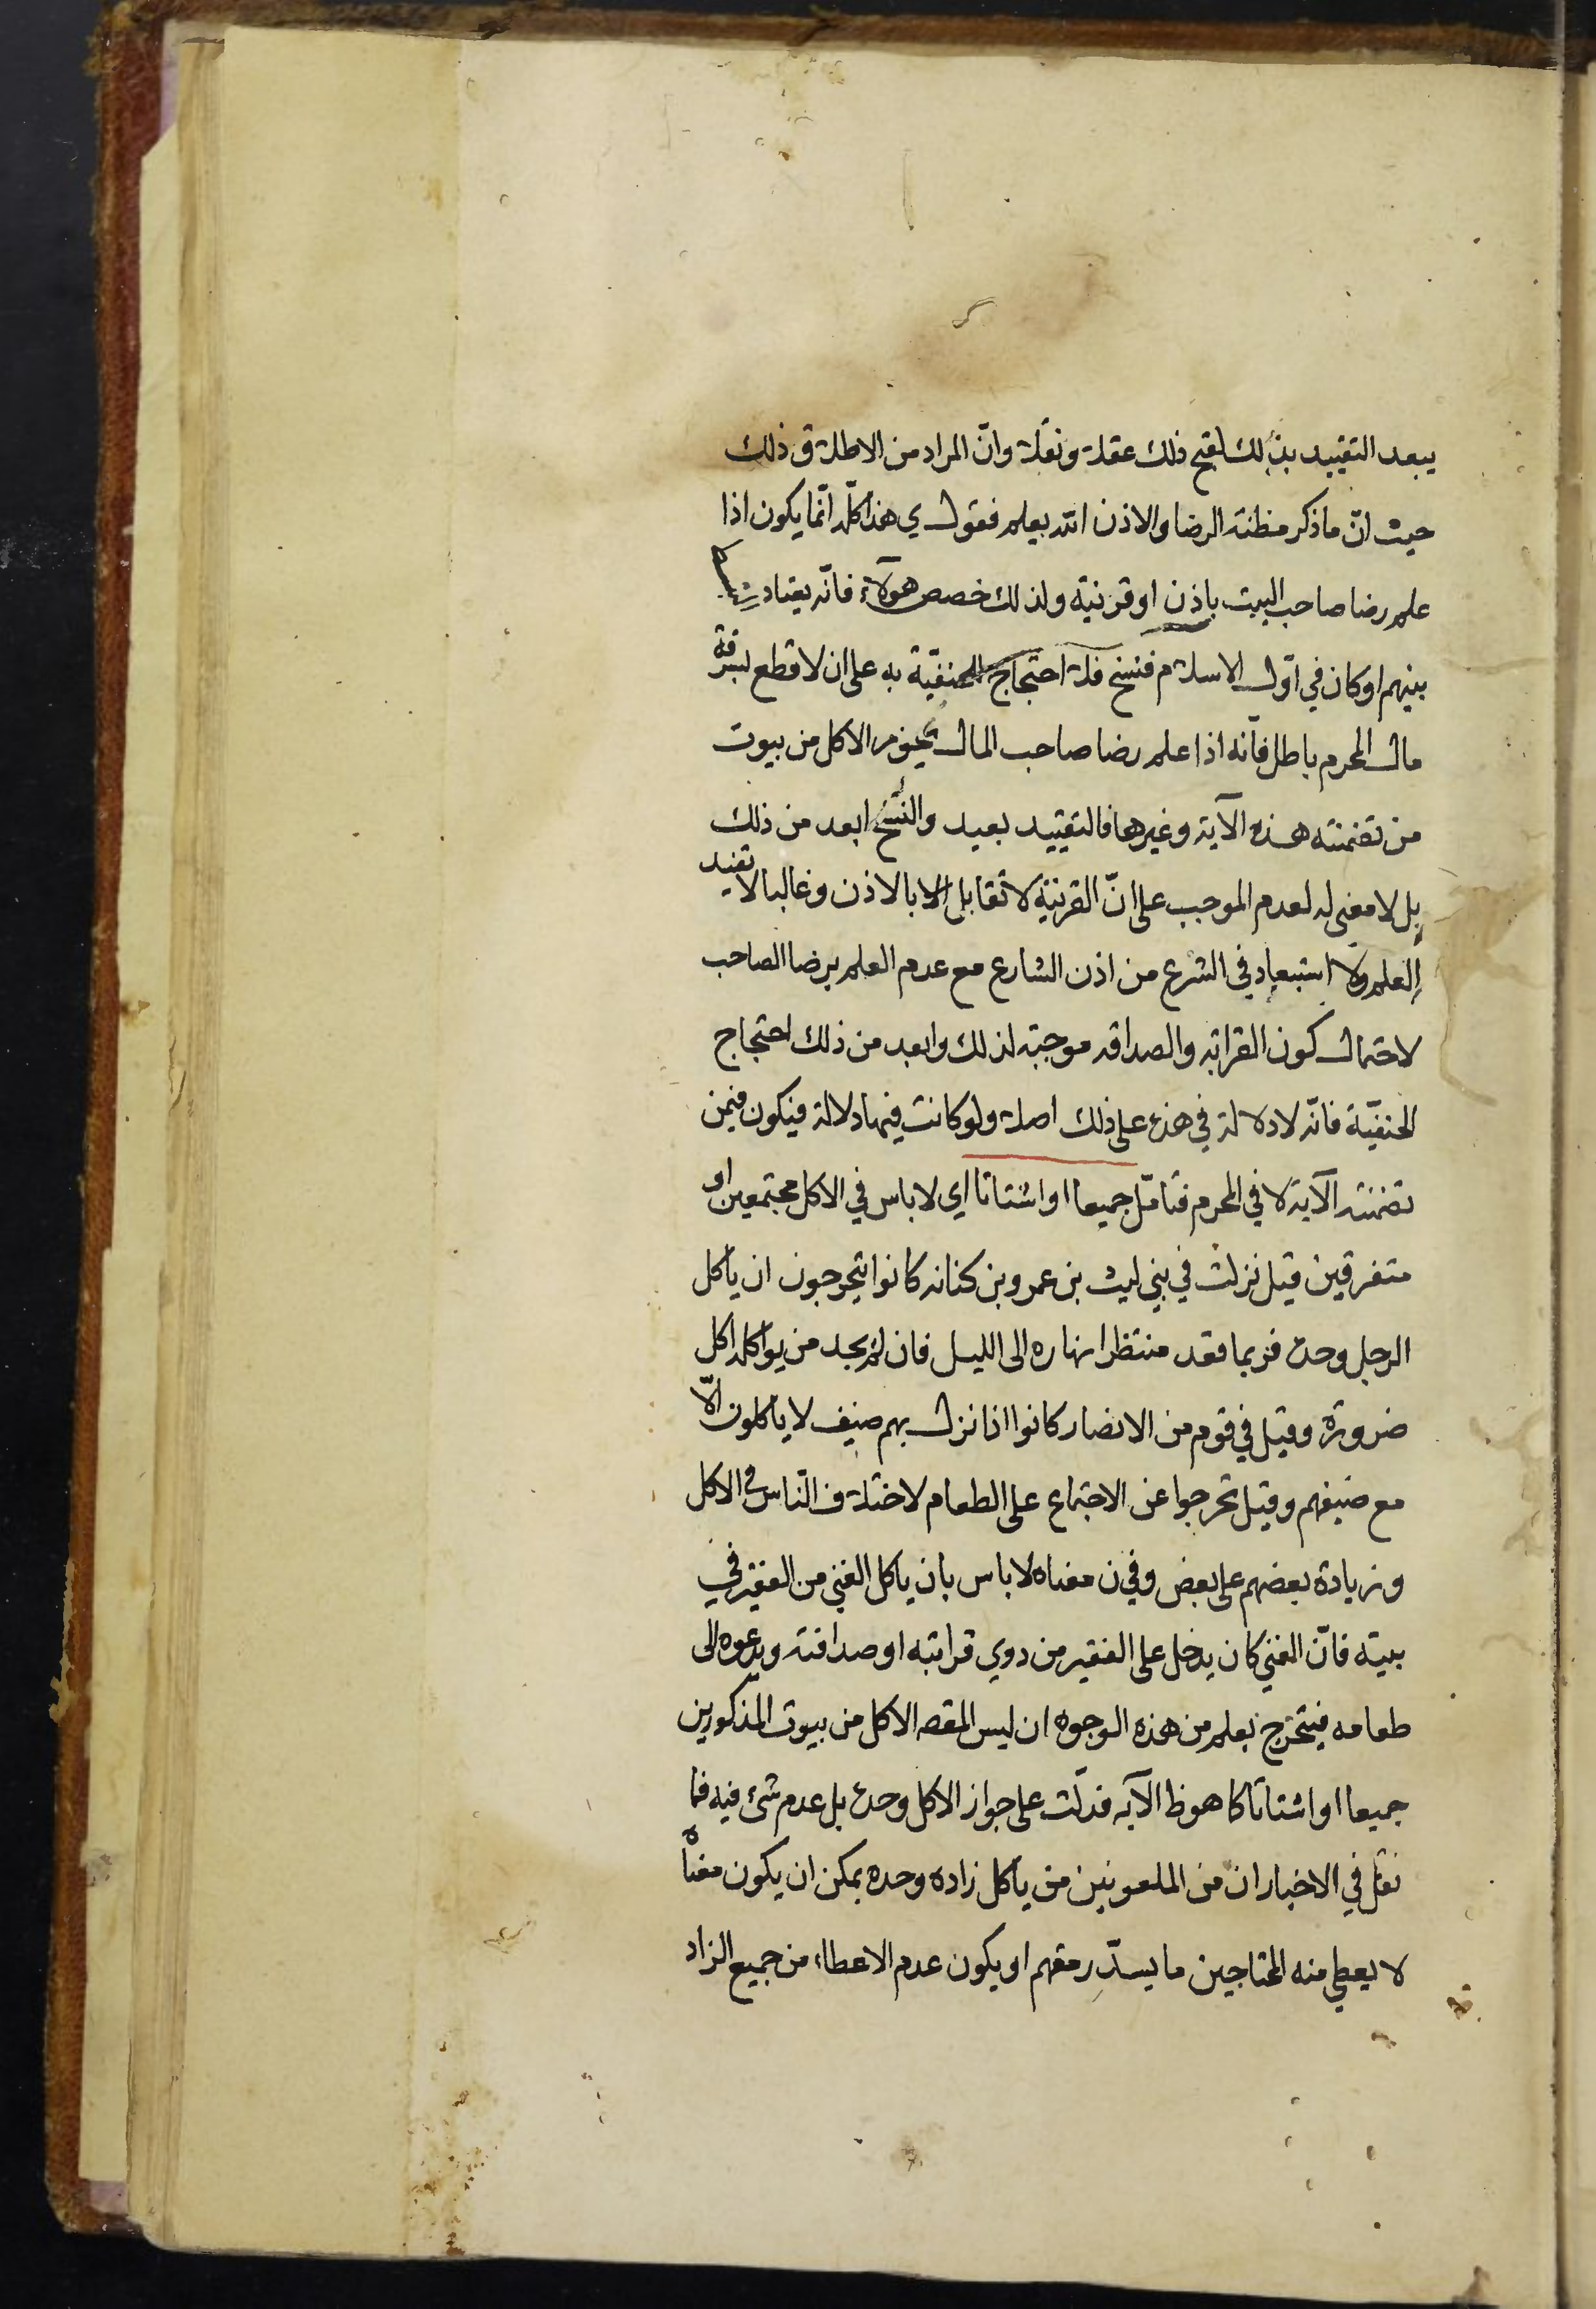 يبعد التقييد بذلك لقبح ذلك عقلا ونقلا وانّ المراد من الاطلاق ذلك
حيث انّ ما ذكر مظنة الرضا والاذن الله يعلم فقول ي هذا كلّه انّما يكون اذا
علم رضا صاحب البيت باذن او قرنية ولذلك خصص هؤلاء فانّه يعتاد
بينهم او كان في اوّل الاسلام فنسخ فلا احتجاج للحنفيّة به على ان لا قطع لسرقة
مال المحرم باطل فانّه اذا علم رضا صاحب المال يجوز الاكل من بيوت
من تضمنته هذه الآية وغيرها فالتقييد بعيد والنسخ ابعد من ذلك
بل لا معنى له لعدم الموجب على انّ القرنية لا تقابل الا بالاذن وغالبا لا تفيد
العلم ولا استبعاد في الشرع من اذن الشارع مع عدم العلم برضا الصاحب
لاحتمال كون القرابة والصداقه موجبة لذلك وابعد من ذلك احتجاج
الحنفيّة فانّه لا دلالة في هذه على ذلك اصلا ولو كانت فيها دلالة فيكون فيمن
تضمنته الآية لا في المحرم فتامّل جميعا او اشتاتا اي لا باس في الاكل مجتمعين او
متفرقين قيل نزلت في بني ليث بن عمرو بن كنانه كانوا يتحرجون ان ياكل
الرجل وحده فربما قعد منتظرا نهاره الى الليل فان لم يجد من يواكله اكل
ضرورة وقيل في قوم من الانصار كانوا اذا نزل بهم ضيف لا ياكلون الّا
مع ضيفهم وقيل تحرجوا عن الاجتماع على الطعام لاختلاف النّاس في الاكل
وزيادة بعضهم على بعض وفي ن معناه لا باس بان ياكل الغني من الفقير في
بيته فانّ الغني كان يدخل على الفقير من ذوي قرابته او صداقته ويدعوه الى
طعامه فيتحرج يعلم من هذه الوجوه ان ليس المقصه الاكل من بيوت المذكورين
جميعا او اشتاتا كا هو ظ الآيه فدلّت على جواز الاكل وحده بل عدم شئ فيه فما
نقل في الاخبار ان من الملعونين من ياكل زاده وحده يمكن ان يكون معناه
لا يعطي منه المحتاجين ما يسدّ رمقهم او يكون عدم الاعطاء من جميع الزاد